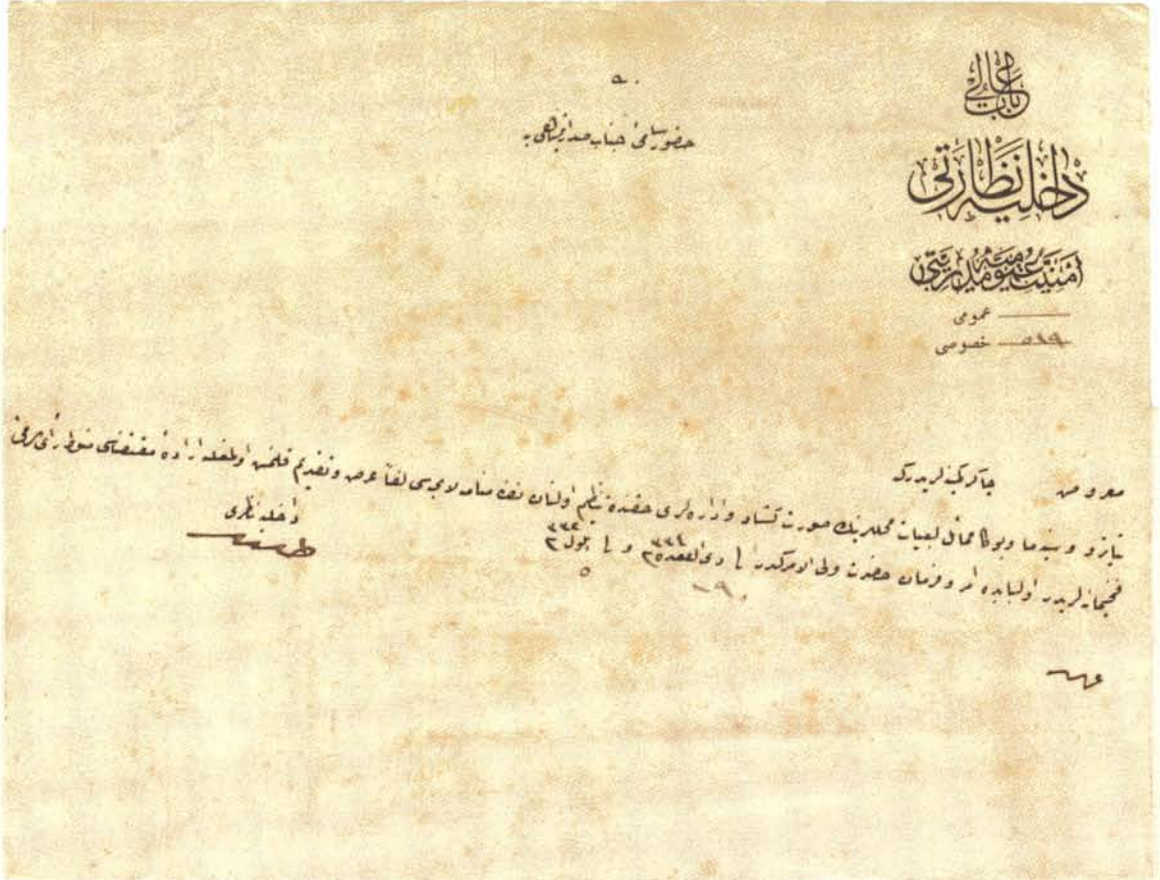 باب عالی
داخلیه نظارتی
امنیت عمومیه مدیریتی
عمومی
خصوصی ٥٨٩
حضور سامئ جناب صدارتپناهی یه
معروض چاکر کمینه لریدر که
تیاترو و سینما و بوکا مماثل لعبیات محللرینك صورت کشاد و اداره لری حقنده تنظیم اولنان نظامنامه لایحه سی لفاً عرض و تقدیم قلنمش اولمغله اراده مقتضاسی منوط رأی
فخیمانه لریدر اولبابده امر و فرمان حضرت ولی الامرکدر فی ذی القعده ٣٣٤ و فی ایلول ٣٣٢
داخلیه ناظری